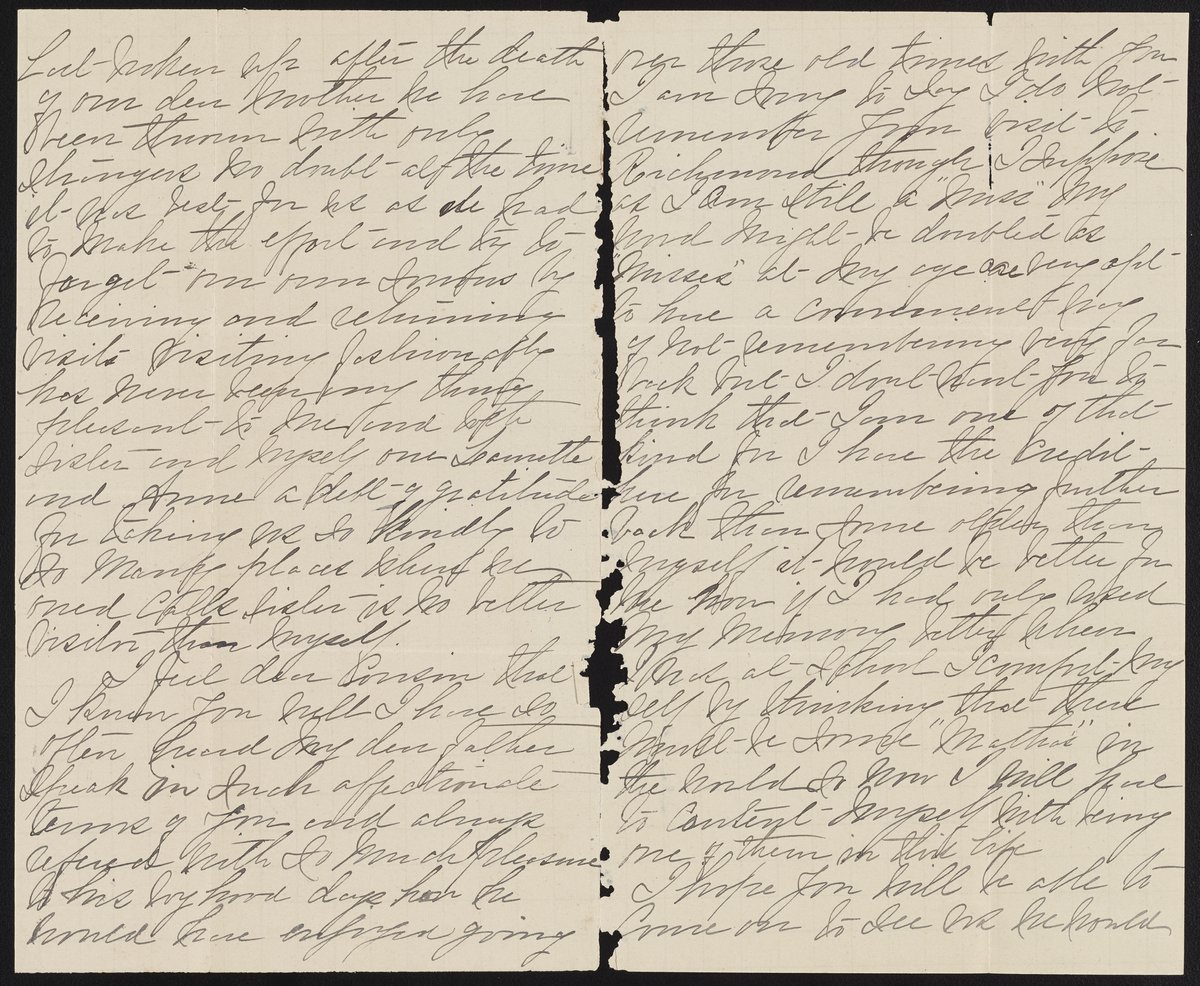 after the death
of our dear Mother we have
been thrown with only
strangers no doubt all the time
it was best for us as we had
to make the effort and try to
forget our own sorrows by
receiving and returning
visits visiting fashionably
has never been any thing
pleasant to me and both
sister and myself owe
and Anne a debt of gratitude
for taking us so kindly to
so many places where we
owed calls sister is no better
visitor than myself.
I feel dear Cousin that
I know you well I have so
often heard my dear Father
speak in such affectionate
terms of you and always
refered with so much pleasure
to his boyhood days how he
would have enjoyed going
over those old times with you
I am sorry to say I do not
remember your visit to
Richmond though I suppose
as I am still a "Miss" my
word might be doubted as
"Misses" at my age are very apt
to have a convenient way
of not remembering very far
back but I dont want you to
think that I am one of that
kind for I have the credit
here for remembering further
back than some older than
myself it would be better for
me now if I had only used
my memory better when
I was at school I comfort my
self by thinking that there
must be some "Marthas" in
the world so now I will have
to content myself with being
one of them in this life
I hope you will be able to
come on to see us we would